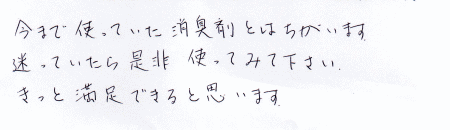 今まで使っていた消臭剤とはちがいます
迷っていたら是非使ってみて下さい.
きっと満足できると思います